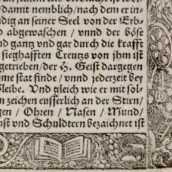 damit nemmlich/ nach dem er in
ndig an seiner Seel von der Erb-
h abgewaschen/ vnnd der böse
nd gantz vnd gar durch die krafft
sieghafften Creutzs von jhm ist
getrieben/ der H. Geist dargegen
me stat finde/ vnnd jederzeit bey
bleibe. Vnd gleich wie er mit sol-
en zeichen eusserlich an der Stirn/
gen/ Ohren/ Nasen/ Mund/
ust vnd Schuldtern bezeichnet ist